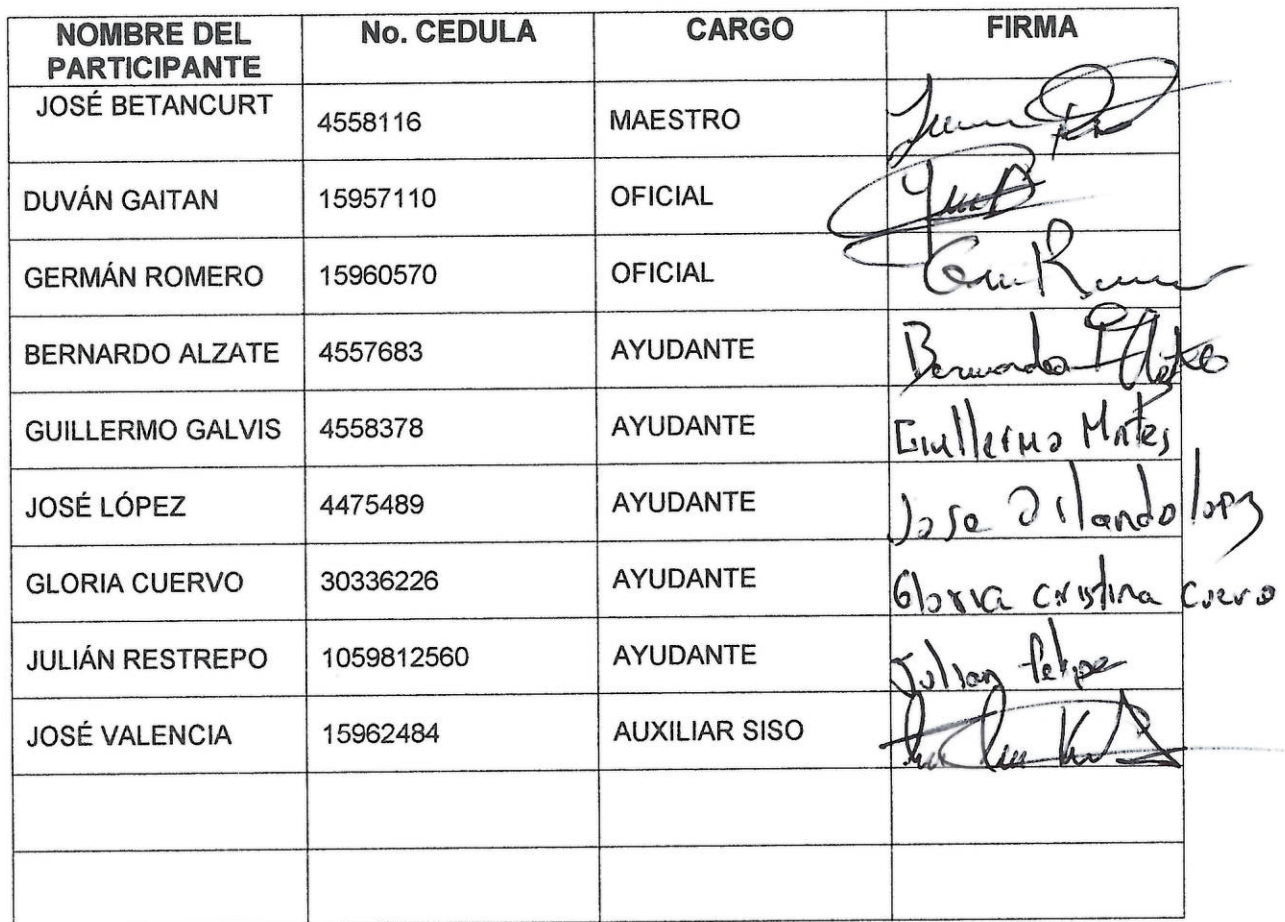 NOMBRE DEL PARTICIPANTE No. CEDULA CARGO FIRMA
JOSÉ BETANCURT 4558116 MAESTRO
DUVÁN GAITAN 15957110 OFICIAL
GERMÁN ROMERO 15960570 OFICIAL
BERNARDO ALZATE 4557683 AYUDANTE Bernardo
GUILLERMO GALVIS 4558378 AYUDANTE Guillermo
JOSÉ LÓPEZ 4475489 AYUDANTE Jose Orlando lopz
GLORIA CUERVO 30336226 AYUDANTE Gloria cristina cuervo
JULIÁN RESTREPO 1059812560 AYUDANTE Julian felipe
JOSÉ VALENCIA 15962484 AUXILIAR SISO